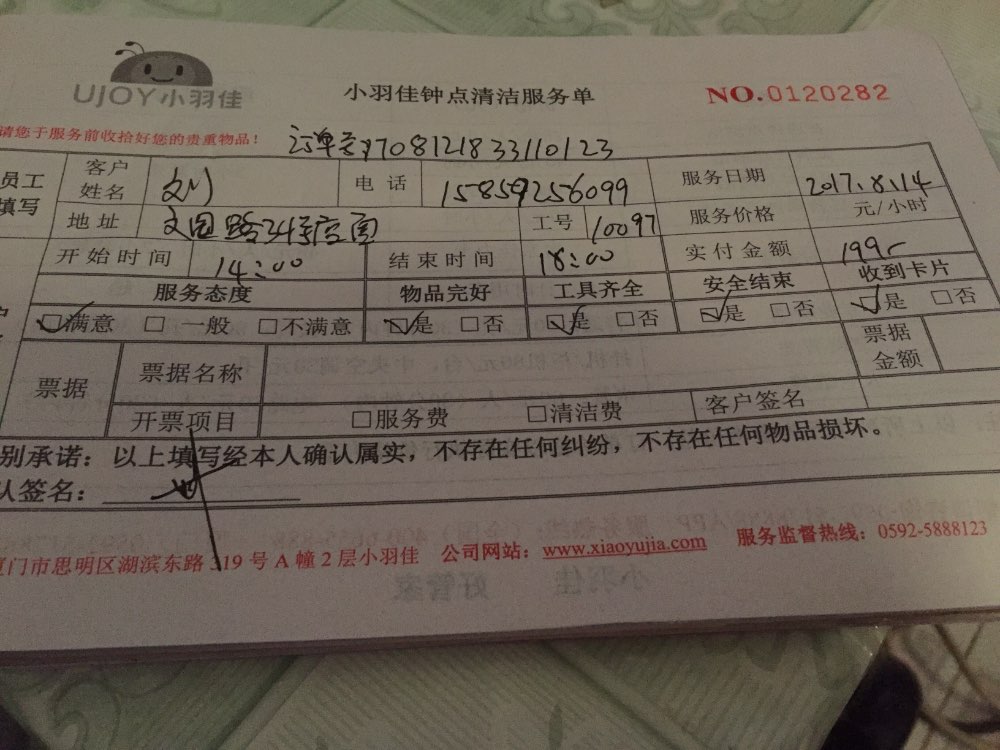 UJOY小羽佳
小羽佳钟点清洁服务单
NO.0120282
请您于服务前收拾好您的贵重物品！
订单号 1708121833110123
员工填写
客户姓名
电话 15859256099
服务日期 2017.8.14
地址
工号 10097
服务价格 元/小时
开始时间 14:00
结束时间 18:00
实付金额 199
服务态度 物品完好 工具齐全 安全结束 收到卡片
满意 一般 不满意 是 否 是 否 是 否 是 否
票据 票据名称 票据金额
开票项目 服务费 清洁费 客户签名
别承诺：以上填写经本人确认属实，不存在任何纠纷，不存在任何物品损坏。
认签名：
厦门市思明区湖滨东路319号A幢2层小羽佳 公司网站：www.xiaoyujia.com 服务监督热线：0592-5888123